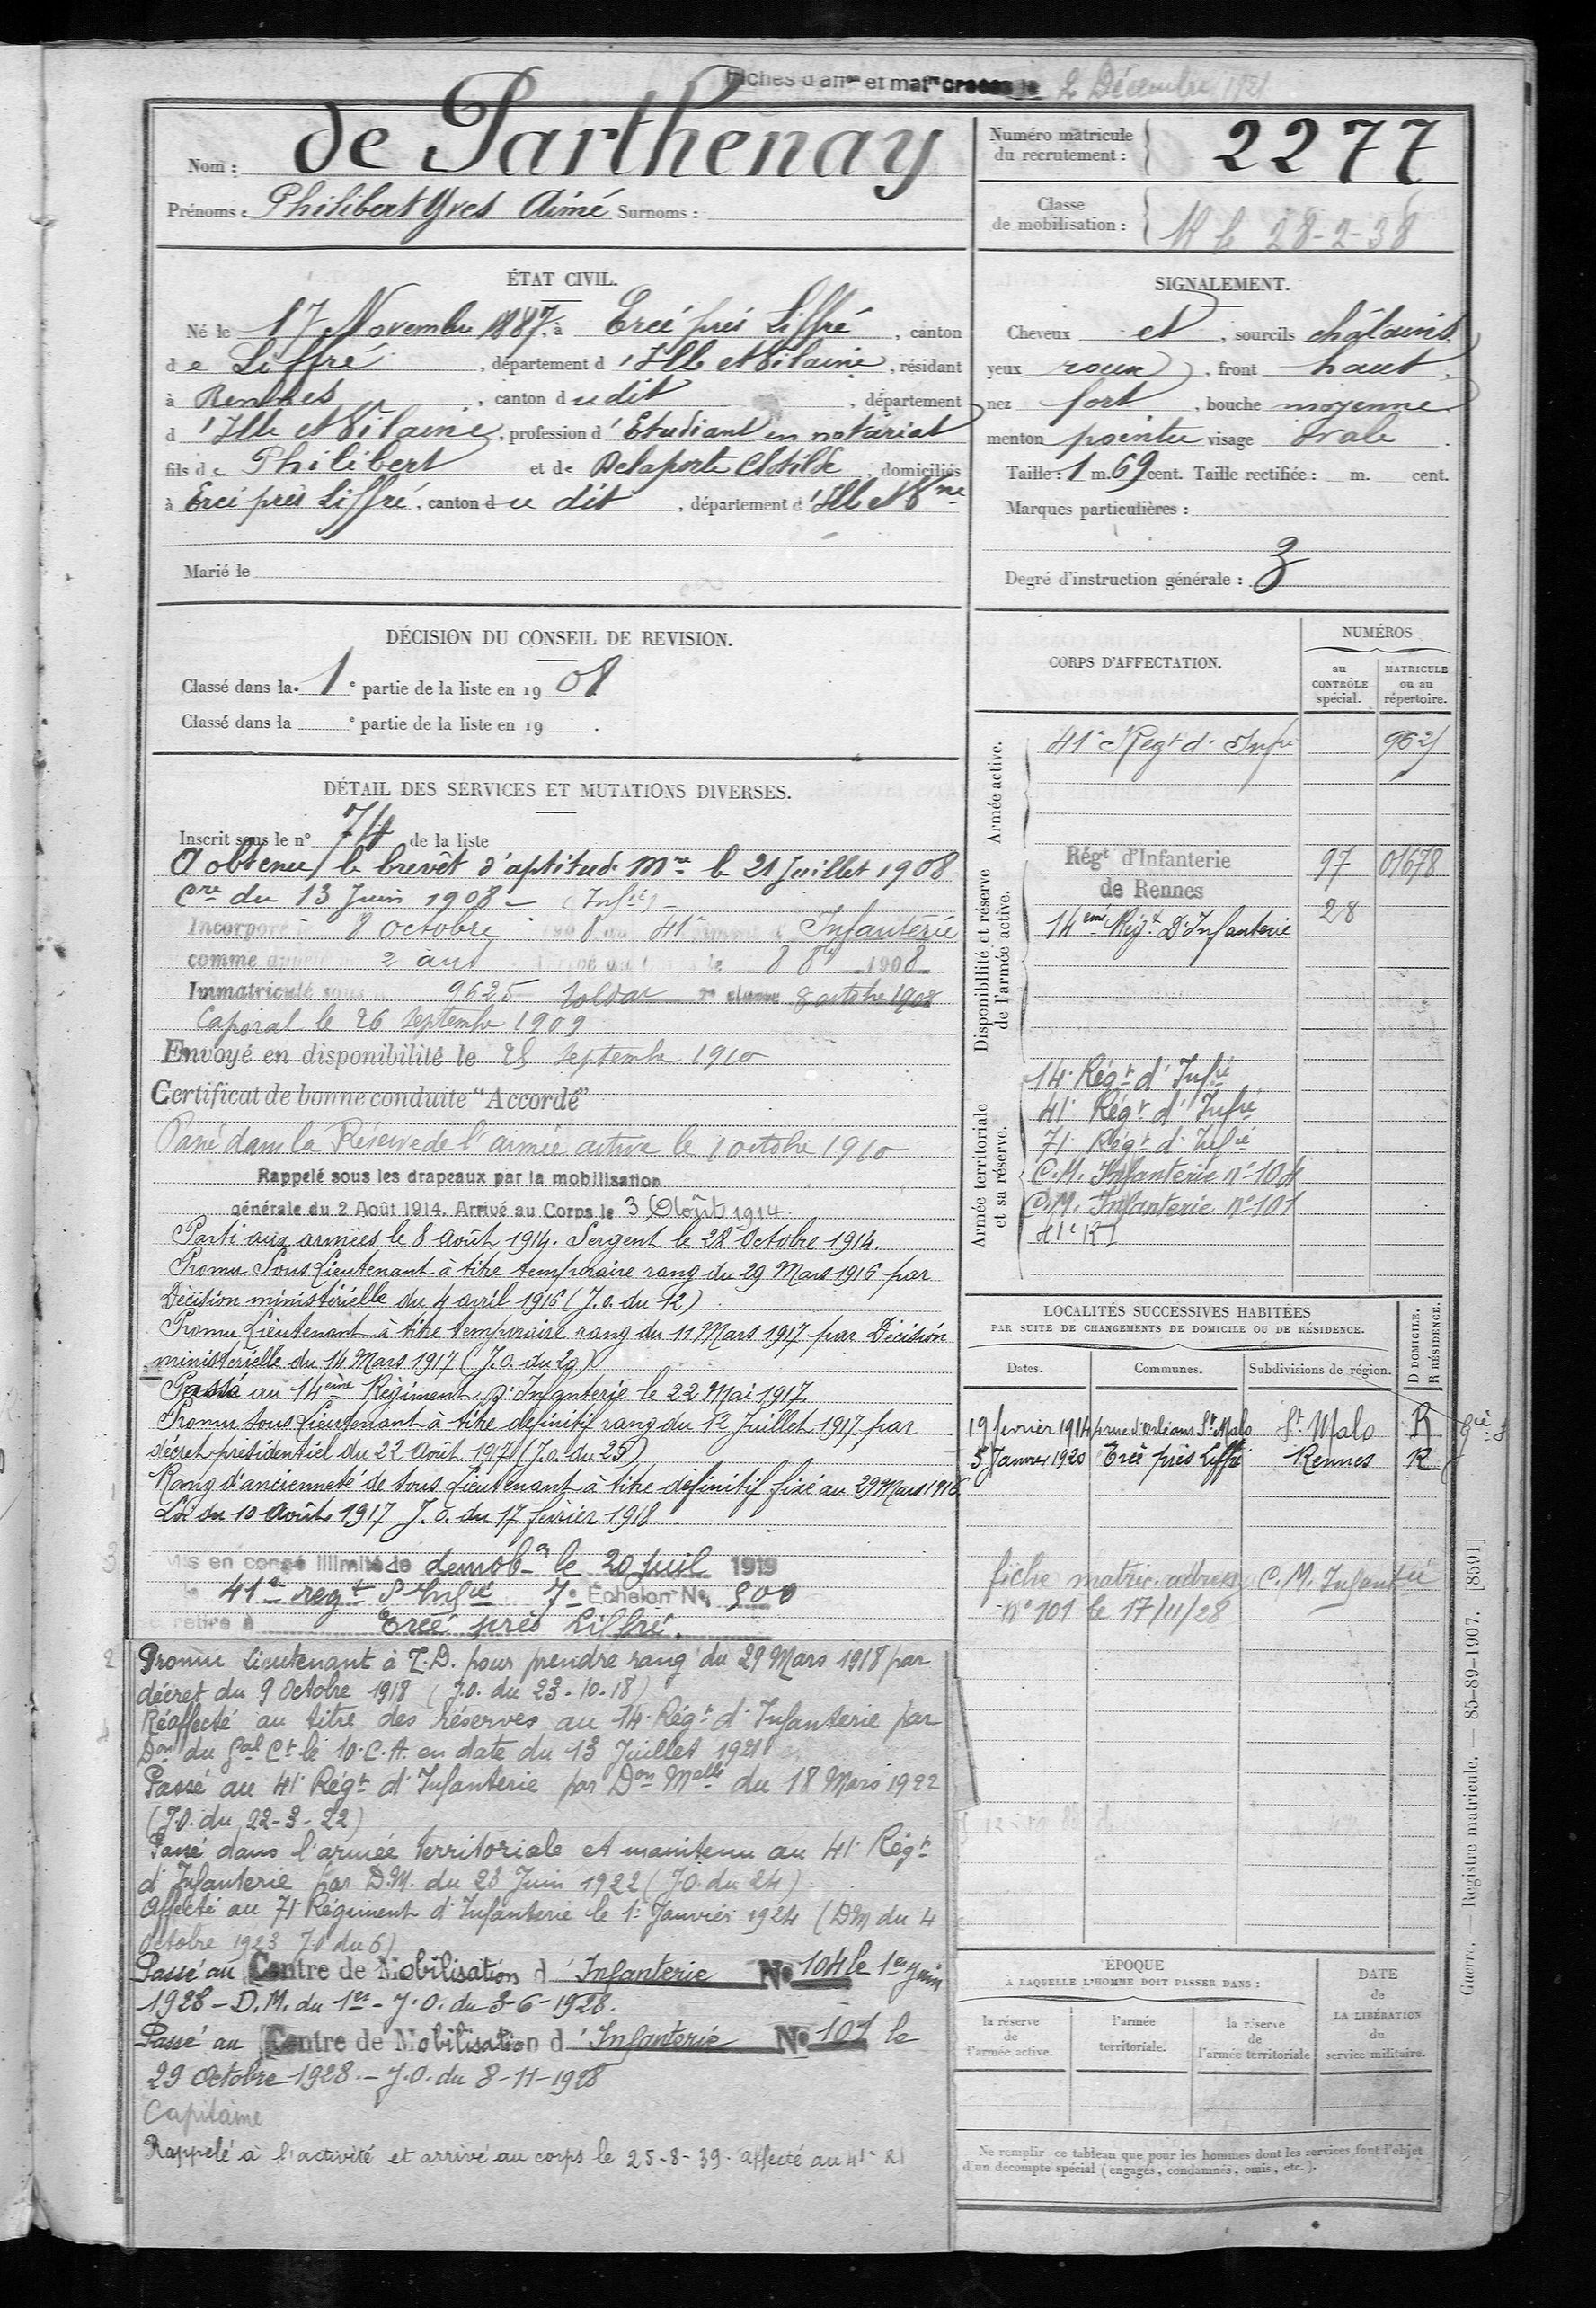 Fiches d'affon et matre creees le 2 Décembre 1921
Nom : de Parthenay
Prénoms : Philibert Yves Aimé Surnoms :
Numéro matricule du recrutement : 2277
Classe de mobilisation : 28-2-38
ÉTAT CIVIL.
Né le 17 Novembre 1887, à Ercé près Liffré, canton
de Liffré, département d'Ille et Vilaine, résidant
à Rennes, canton dudit, département
d'Ille et Vilaine, profession d'Etudiant en notariat
fils de Philibert et de Delaporte Clotilde, domiciliés
à Ercé près Liffré, canton du dit, département d'Ille et Vne
Marié le
SIGNALEMENT.
Cheveux et, sourcils châtains
yeux roux, front haut,
nez fort, bouche moyenne
menton pointu visage ovale.
Taille : 1 m. 69 cent. Taille rectifiée : m. cent.
Marques particulières :
Degré d'instruction générale : 3
DÉCISION DU CONSEIL DE REVISION.
Classé dans la 1e partie de la liste en 1908
Classé dans la e partie de la liste en 19 .
DÉTAIL DES SERVICES ET MUTATIONS DIVERSES.
Inscrit sous le n° 74 de la liste
A obtenu le brevêt d'aptitude Mre le 21 Juillet 1908
Cre du 13 Juin 1908 - (Infie) -
Incorporé le 8 octobre 1908 au 41e Infanterie
comme appelé 2 ans Arrivé au le 8 8bre 1908
Immatriculé sous 9625 Soldat 2e classe 8 octobre 1908
Caporal le 26 Septembre 1909
Envoyé en disponibilité le 28 Septembre 1910
Certificat de bonne conduite "Accordé"
Passé dans la Réserve de l'armée active le 1 octobre 1910
Rappelé sous les drapeaux par la mobilisation
générale du 2 Août 1914. Arrivé au Corps le 3 Août 1914.
Parti aux armées le 8 août 1914. Sergent le 28 Octobre 1914.
Promu Sous Lieutenant à titre temporaire rang du 29 Mars 1916 par
Décision ministérielle du 4 avril 1916 (J.O. du 12)
Promu Lieutenant à titre temporaire rang du 11 Mars 1917 par Décision
ministérielle du 14 Mars 1917 (J.O. du 29)
Passé au 14ème Régiment D'Infanterie le 22 Mai 1917.
Promu Sous Lieutenant à titre definitif rang du 12 Juillet 1917 par
décret presidentiel du 22 Août 1917 (J.O. du 25)
Rang d'ancienneté de Sous Lieutenant à titre définitif fixé au 29 Mars 1916
Loi du 10 Août 1917 J.O. du 17 février 1918.
3
Mis en congé illimité de demobon le 20 Juil 1919
le 41e regt d'Infie 7e Echelon N° 500
se retire à Ercé près Liffré.
2
Promu Lieutenant à T.D. pour prendre rang du 29 Mars 1918 par
décret du 9 Octobre 1918 (J.O. du 23-10-18)
Réaffecté au titre des réserves au 14e Régt d'Infanterie par
Don du Gal Ct le 10.C.A. en date du 13 Juillet 1921
Passé au 41e Régt d'Infanterie par Don Melle du 18 Mars 1922
(J.O. du 22-3-22)
Passé dans l'armée territoriale et maintenu au 41e Régt
d'Infanterie par D.M. du 23 Juin 1922 (J.O. du 24)
Affecté au 71e Régiment d'Infanterie le 1er Janvier 1924 (DM du 4
Octobre 1923 J.O du 6)
Passé au Centre de Mobilisation d'Infanterie N° 104 le 1er Juin
1928 - D.M. du 1er - J.O. du 3-6-1928.
Passé au Centre de Mobilisation d'Infanterie N° 101 le
29 Octobre 1928. - J.O. du 8-11-1928
Capitaine
Rappelé à l'activité et arrivé au corps le 25-8-39. affecté au 41e RI
CORPS D'AFFECTATION.
NUMÉROS
au CONTRÔLE spécial.
MATRICULE ou au répertoire.
Armée active.
41e Régt d'Infie 9625
Disponibilité et réserve de l'armée active.
Régt d'Infanterie 97 01678
de Rennes
14eme Régt D'Infanterie 28
Armée territoriale et sa réserve.
14e Régt d'Infie
41e Régt d'Infie
71e Régt d'Infie
C.M. Infanterie n° 104
C.M. Infanterie n° 101
41e RI
LOCALITÉS SUCCESSIVES HABITÉES
PAR SUITE DE CHANGEMENTS DE DOMICILE OU DE RÉSIDENCE.
D DOMICILE.
R RÉSIDENCE.
Dates. Communes. Subdivisions de région.
19 fevrier 1914 rue d'Orléans St Malo St Malo R
5 Janvier 1920 Ercé près Liffré Rennes R
fiche matric. adress C.M. Infanterie
n° 101 le 17/11/28
ÉPOQUE
À LAQUELLE L'HOMME DOIT PASSER DANS :
la réserve de l'armée active.
l'armée territoriale.
la réserve de l'armée territoriale
DATE de LA LIBÉRATION du service militaire.
Ne remplir ce tableau que pour les hommes dont les services font l'objet
d'un décompte spécial (engagés, condamnés, omis, etc.).
Guerre. — Registre matricule. — 85-89-1907. [8591]